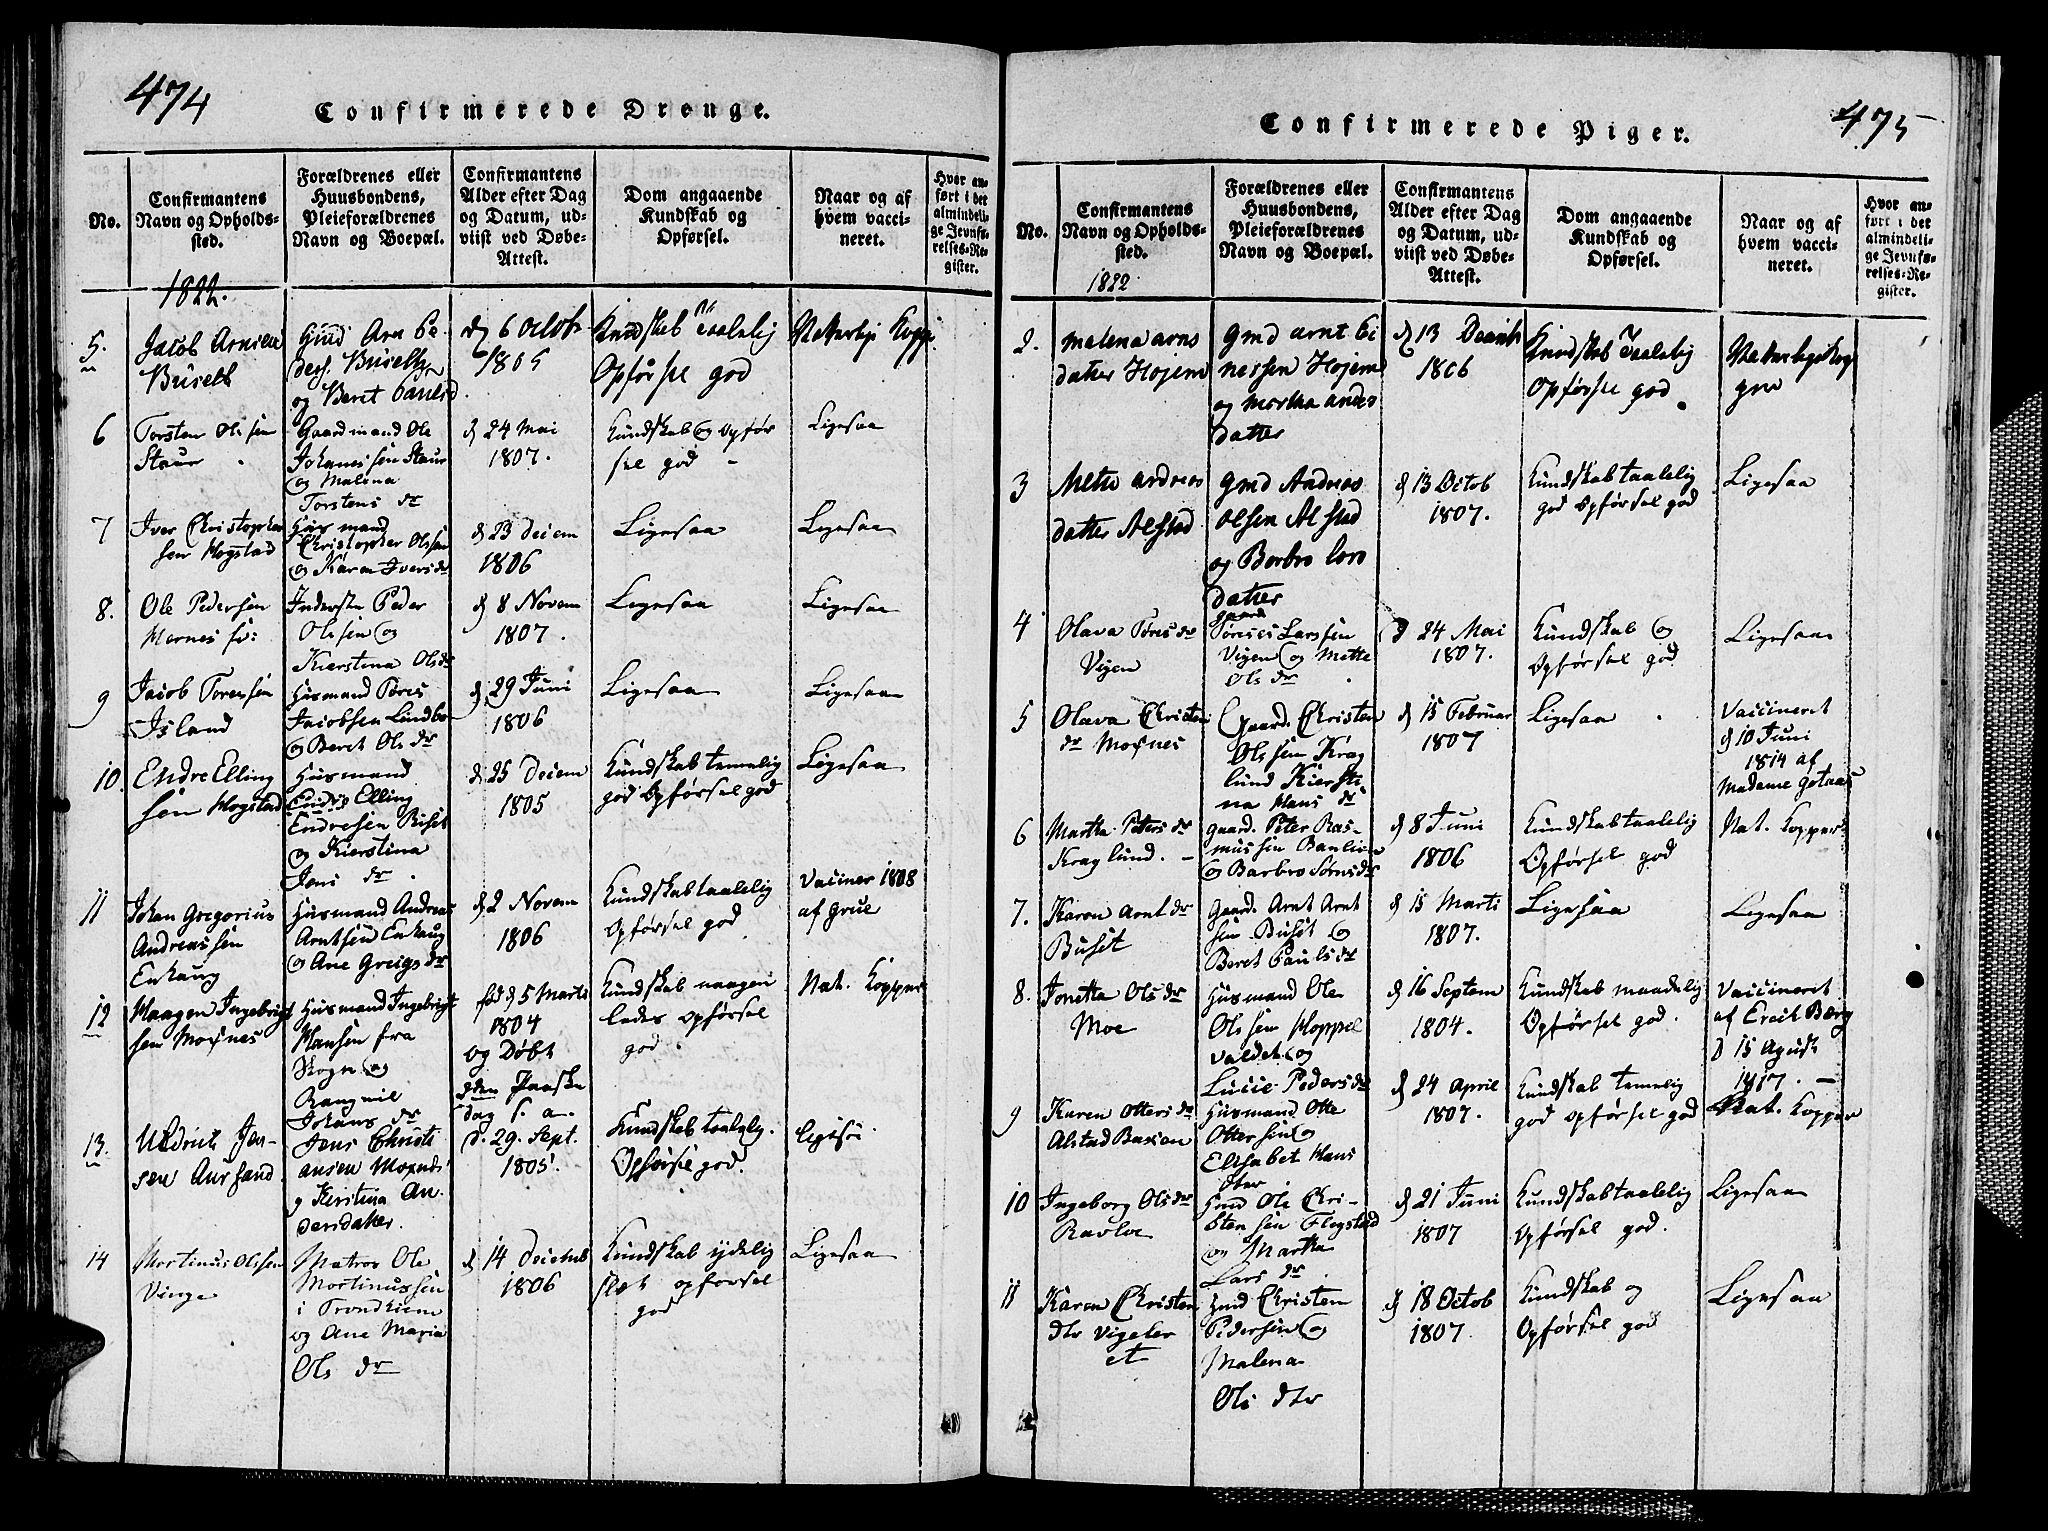 474
Confirmerede Drenge.
No.
Confirmantens
Navn og Opholds-
sted.
Forældrenes eller
Huusbondens,
Pleieforældrenes
Navn og Boepæl.
Confirmantens
Alder efter Dag
og Datum, ud-
viist ved Døbe-
Attest.
Dom angaaende
Kundskab og
Opførsel.
Naar og af
hvem vacci-
neret.
Hvor an-
ført i det
almindeli-
ge Jevnfø-
relses-Re-
gister.
1822.
5.
Jacob
Buseth
Gmd Arn Pe
ders. Buseth
og Beret
6 Octobr
1805
Kundskab Taalelig
Opførsel god
Naturlige Kopp.
6
Torsten Olssen
Staur
Gaardmand Ole
Johanessen Staur
og Malena
Torstens dr
d 24 Mai
1807.
Kundskab og Opfør
sel god -
Ligesaa
7
Iver Christopher
sen Hogstad
Husmand
Christopher Olssen
og Karen Ivers dr
d 23 Decem
1806
Ligesaa
Ligesaa
8.
Ole Pedersen
Inderste Peder
Olssen og
Kierstina Ols dr
d 8 Novem
1807.
Ligesaa
Ligesaa
9
Jacob Toressen
Island
Husmand Tøres
Jacobsen
og Beret Ols dr
d 29 Juni
1806
Ligesaa
Ligesaa
10.
Endre Elling
sen Hogstad
Husmand
Elling
Endresen
og Kierstina
Jens dr.
d 25 Decem
1805
Kundskab temelig
god Opførsel god
Ligesaa
11
Johan Gregorius
Andreassen
Enhaug
Husmand Andreas
Arntsen Enhaug
og Ane Greigs dr
d 2 Novem
1806
Kundskab taalelig
Opførsel god
Vaciner 1808
af Grue
12
Haagen Ingebrigt
sen Moxnes
Husmand Ingebrigt
Hansen fra
Skogn og
Rangnil
Johans dr
fød d 5 Marts
1804
og Døbt
den Paaske
dag s. a.
Kundskab naagen
ledes Opførsel
god.
Nat. Kopper
13.
Uldrick Jen-
sen
Jens Christi
ansen Moxnes
og Kirstina An-
dersdatter.
d. 29. Sept.
1805.
Kundskab taalelig.
Opførsel god.
14
Mortinus Olssen
Vinge
Matros Ole
Mortinussen
i Trondhiem
og Ane Maria
Ols dr
d 14 Decemb
1806
Kundskab ydelig
slet opførsel
god
Ligesaa
475
Confirmerede Piger.
No.
Confirmantens
Navn og Opholds-
sted.
Forældrenes eller
Huusbondens,
Pleieforældrenes
Navn og Boepæl.
Confirmantens
Alder efter Dag
og Datum, ud-
viist ved Døbe-
Attest.
Dom angaaende
Kundskab og
Opførsel.
Naar og af
hvem vacci-
neret.
Hvor an-
ført i det
almindeli-
ge Jevnfø-
relses-Re-
gister.
1822
2.
Malena Arns
datter Hojem
Gmd Arnt
nessen Hojem
og Martha Anders
datter
d 13 Decemb
1806
Kundskab Taalelig
Opførsel god
Naturlige Kop
per
3
Mette Andreas
datter Alstad
Gmd Andreas
Olsen Alstad
og Barbro Lars
datter
d 13 Octob
1807.
Kundskab taalelig
god Opførsel god
Ligesaa
4
Olava Tøres dr
Vigen
Gaard
Tøresis Larssen
Vigen og Mette
Ols dr
d 24 Mai
1807.
Kundskab og
Opførsel god
Ligesaa
5
Olava Christens
dr Moxnes
Gaard. Christen
Olssen Krag
lund Kiersti
na Hans dr
d 15 Februar
1807
Ligesaa
Vaccineret
d 10 Juni
1814 af
Madame
6
Martha Peters dr
Kraglund. -
Gaard. Peter Ras-
mussen
og Barbro Sørens dr
d 8 Juni
1806
Kundskab taalelig
Opførsel god
Nat. Kopper
7.
Karen Arnt dr
Busét
Gaard. Arnt Arnt
sen Busét og
Beret Pauls dr
d 15 Marts
1807.
Ligesaa
Ligesaa
8.
Jonetta Ols dr
Moe
Husmand Ole
Olssen Hoppel
valdet og
Lucie Peders dr
d 16 Septem
1804.
Kundskab maadelig
Opførsel god.
Vaccineret
af Erich Berg
d 15 Agust
1817. -
9
Karen Otters dr
Alstad
Husmand Otte
Ottersen og
Elisabet Hans
dter
d 24 April
1807.
Kundskab temelig
god opførsel god
Nat. Kopper
10
Ingeborg Ols dr
Ravlo
Gmd Ole Chri-
stensen Flegstad
og Martha
Lars dr
d 21 Juni
1807
Kundskab taalelig
Opførsel god.
Ligesaa
11
Karen Christen
dtr
Gmd Christen
Pedersen og
Malena
Ols dtr
d 18 Octob
1807.
Kundskab og
Opførsel god
Ligesaa